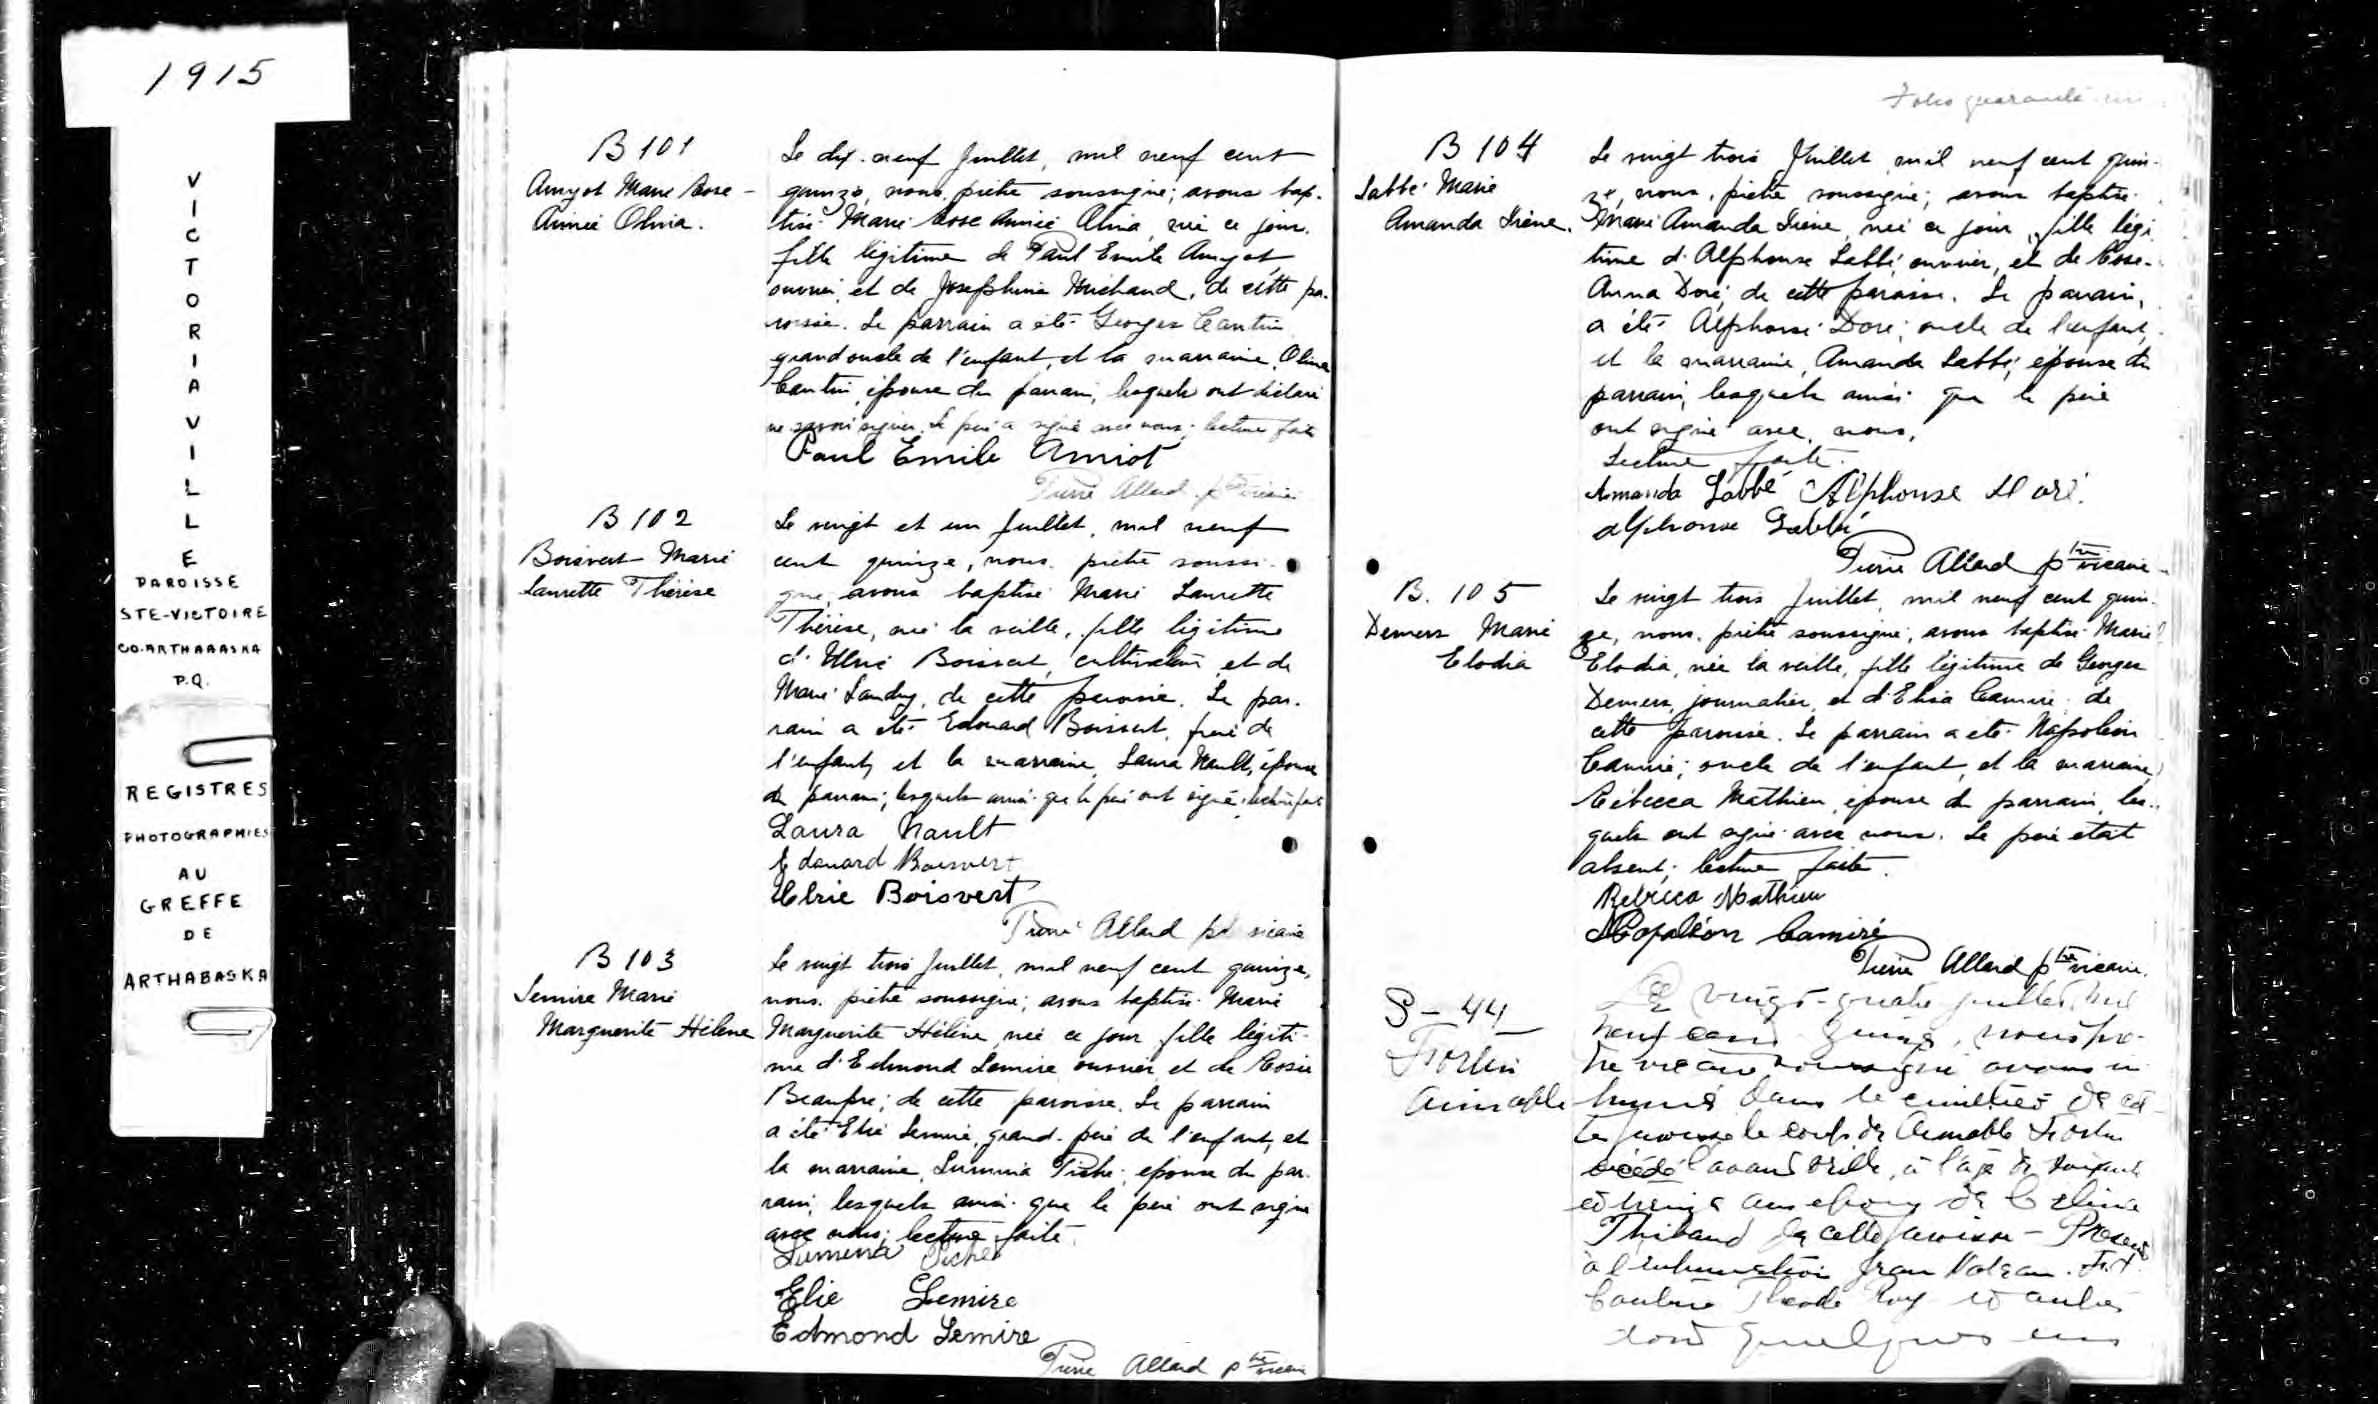 1915
VICTORIAVILLE
PAROISSE
STE-VICTOIRE
CO. ARTHABASKA
P.Q.
REGISTRES
PHOTOGRAPHIES
AU
GREFFE
DE
ARTHABASKA
B 101
Amyot Marie Rose -
Aimée Olina.
Le dix-neuf Juillet, mil neuf cent
quinze, nous, prêtre soussigné, avons bap-
tisé Marie Rose Aimée Olina, née ce jour,
fille légitime de Paul Emile Amyot,
ouvrier, et de Josephine Michaud, de cette pa-
roisse. Le parrain a été Georges Cantin
grand oncle de l'enfant, et la marraine, Olina
Cantin, épouse du parrain, lesquels ont déclaré
ne savoir signer. Le père a signé avec nous; lecture faite
Paul Emile Amiot
Pierre Allard ptre vicaire
B 102
Boisvert Marie
Laurette Thérèse
Le vingt et un Juillet, mil neuf
cent quinze, nous, prêtre soussi-
gné, avons baptisé Marie Laurette
Thérèse, née la veille, fille légitime
d'Ulric Boisvert, cultivateur, et de
Marie Landry, de cette paroisse. Le par-
rain a été Edouard Boisvert, frère de
l'enfant, et la marraine, Laura Nault, épouse
du parrain; lesquels ainsi que le père ont signé; lecture faite
Laura Nault
Edouard Boisvert
Ulric Boisvert
Pierre Allard ptre vicaire
B 103
Lemire Marie
Marguerite Hélène
Le vingt trois Juillet, mil neuf cent quinze,
nous, prêtre soussigné, avons baptisé Marie
Marguerite Hélène, née ce jour, fille légiti-
me d'Edmond Lemire, ouvrier et de Rosée
Beaupré; de cette paroisse. Le parrain
a été Elie Lemire, grand-père de l'enfant, et
la marraine, Lumina Piché, épouse du par-
rain, lesquels ainsi que le père ont signé
avec nous; lecture faite.
Lumena Piché
Elie Lemire
Edmond Lemire
Pierre Allard ptre vicaire
Folio quarante-un
B 104
Labbé Marie
Amanda Irène.
Le vingt trois Juillet, mil neuf cent quin-
ze, nous, prêtre soussigné, avons baptisé
Marie Amanda Irène, née ce jour, fille légi
time d'Alphonse Labbé, ouvrier, et de Rose-
Anna Doré, de cette paroisse. Le parrain,
a été Alphonse Doré, oncle de l'enfant,
et la marraine, Amanda Labbé, épouse du
parrain, lesquels ainsi que le père
ont signé avec nous,
Lecture faite.
Amanda Labbé Alphonse Doré.
Alphonse Labbé
Pierre Allard ptre vicaire
B. 105
Demers Marie
Elodia
Le vingt trois Juillet, mil neuf cent quin-
ze, nous, prêtre soussigné, avons baptisé Marie
Elodia, née la veille, fille légitime de Georges
Demers, journalier, et d'Elisa Camiré, de
cette paroisse. Le parrain a été Napoléon
Camiré, oncle de l'enfant, et la marraine,
Rébecca Mathieu, épouse du parrain, les-
quels ont signé avec nous. Le père était
absent; lecture faite.
Rebecca Mathieu
Napoléon Camiré
Pierre Allard ptre vicaire.
S-44
Fortin
Aimable
Le vingt-quatre juillet, mil
neuf cent quinze, nous prê-
tre vicaire soussigné avons in
humé dans le cimetière de cet-
te paroisse le corps de Aimable Fortin
décédé l'avant veille, à l'âge de soixante
et treize ans époux de Célina
Thibaud de cette paroisse - Présents
à l'inhumation Jean
Roy et autres
dont quelques uns